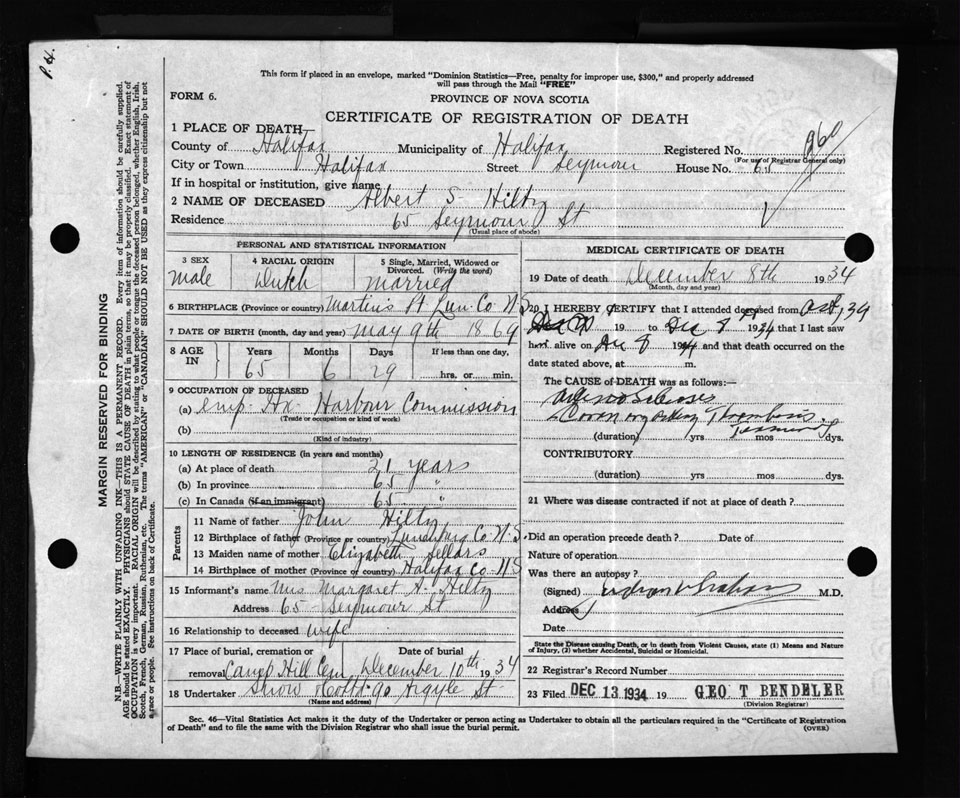 P. 4.
This form if placed in an envelope, marked "Dominion Statistics—Free, penalty for improper use, $300," and properly addressed
will pass through the Mail "FREE"
FORM 6.
PROVINCE OF NOVA SCOTIA
CERTIFICATE OF REGISTRATION OF DEATH
1 PLACE OF DEATH—
County of Halifax Municipality of Halifax Registered No. 960
(For use of Registrar General only)
City or Town Halifax Street Seymour House No. 65
If in hospital or institution, give name
2 NAME OF DECEASED Albert S Hiltz
Residence 65 Seymour St
(Usual place of abode)
PERSONAL AND STATISTICAL INFORMATION
3 SEX 4 RACIAL ORIGIN 5 Single, Married, Widowed or
Divorced. (Write the word)
Male Dutch Married
6 BIRTHPLACE (Province or country) Martins Pt Lun. Co N S
7 DATE OF BIRTH (month, day and year) May 9th 1869
8 AGE IN Years Months Days If less than one day,
65 6 29 hrs. or min.
9 OCCUPATION OF DECEASED
(a) emp. Hx Harbour Commission
(Trade or occupation or kind of work)
(b)
(Kind of industry)
10 LENGTH OF RESIDENCE (in years and months)
(a) At place of death 21 years
(b) In province 65 "
(c) In Canada (if an immigrant) 65 "
Parents
11 Name of father John Hiltz
12 Birthplace of father (Province or country) Lunenburg Co. N. S.
13 Maiden name of mother Elizabeth Sellars
14 Birthplace of mother (Province or country) Halifax Co N S
15 Informant's name Mrs Margaret A. Hiltz
Address 65 Seymour St
16 Relationship to deceased wife
17 Place of burial, cremation or Date of burial
removal Camp Hill Cem December 10th 1934
18 Undertaker Snow & Co Ltd 90 Argyle St
(Name and address)
MEDICAL CERTIFICATE OF DEATH
19 Date of death December 8th 1934
(Month, day and year)
20 I HEREBY CERTIFY that I attended deceased from Oct, 34
19 to Dec 8 1934 that I last saw
him alive on Dec 8 1934 and that death occurred on the
date stated above, at m.
The CAUSE of DEATH was as follows:—
Arteriosclerosis
Coronary Artery Thrombosis
(duration) yrs mos dys.
CONTRIBUTORY
(duration) yrs mos dys.
21 Where was disease contracted if not at place of death?
Did an operation precede death? Date of
Nature of operation
Was there an autopsy?
(Signed) Graham M.D.
Address
Date
State the Disease causing Death, or in death from Violent Causes, state (1) Means and Nature
of Injury, (2) whether Accidental, Suicidal or Homicidal.
22 Registrar's Record Number
23 Filed DEC 13 1934 19 GEO T BENDELER
(Division Registrar)
Sec. 46—Vital Statistics Act makes it the duty of the Undertaker or person acting as Undertaker to obtain all the particulars required in the "Certificate of Registration
of Death" and to file the same with the Division Registrar who shall issue the burial permit.
(OVER)
MARGIN RESERVED FOR BINDING
N.B.—WRITE PLAINLY WITH UNFADING INK—THIS IS A PERMANENT RECORD. Every item of information should be carefully supplied.
AGE should be stated EXACTLY. PHYSICIANS should STATE CAUSE OF DEATH in plain terms, so that it may be properly classified. Exact statement of
OCCUPATION is very important. RACIAL ORIGIN will be described by stating to what people or tongue the deceased person belonged, whether English, Irish,
Scotch, French, German, Russian, Ruthenian, etc. The terms "AMERICAN" or "CANADIAN" SHOULD NOT BE USED as they express citizenship but not
a race or people. See instructions on back of Certificate.